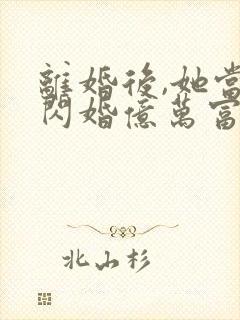 離婚後,她當
閃婚億萬富
北山杉